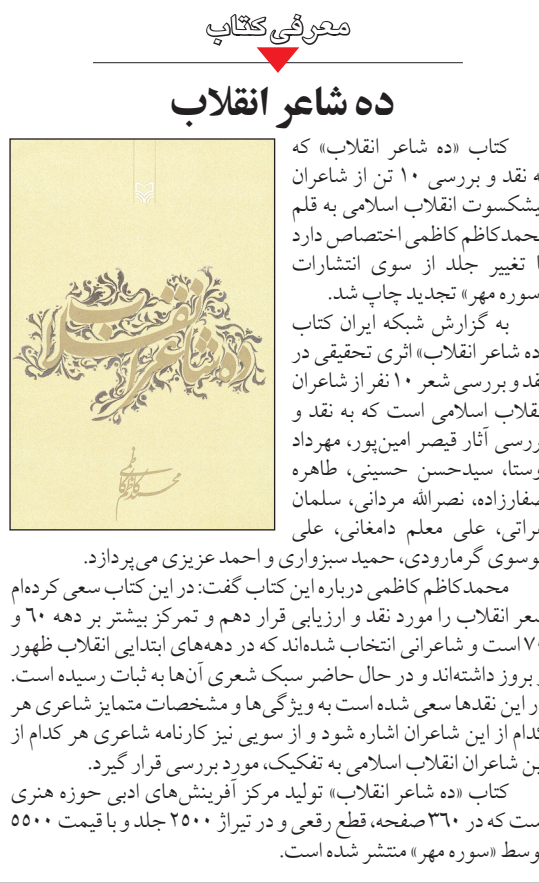 معرفی کتاب
ده شاعر انقلاب
کتاب «ده شاعر انقلاب» که
به نقد و بررسی ۱۰ تن از شاعران
پیشکسوت انقلاب اسلامی به قلم
محمدکاظم کاظمی اختصاص دارد
با تغییر جلد از سوی انتشارات
«سوره مهر» تجدید چاپ شد.
به گزارش شبکه ایران کتاب
«ده شاعر انقلاب» اثری تحقیقی در
نقد و بررسی شعر ۱۰ نفر از شاعران
انقلاب اسلامی است که به نقد و
بررسی آثار قیصر امین‌پور، مهرداد
اوستا، سیدحسن حسینی، طاهره
صفارزاده، نصرالله مردانی، سلمان
هراتی، علی معلم دامغانی، علی
موسوی گرمارودی، حمید سبزواری و احمد عزیزی می‌پردازد.
محمدکاظم کاظمی درباره این کتاب گفت: در این کتاب سعی کرده‌ام
شعر انقلاب را مورد نقد و ارزیابی قرار دهم و تمرکز بیشتر بر دهه ٦٠ و
٧٠ است و شاعرانی انتخاب شده‌اند که در دهه‌های ابتدایی انقلاب ظهور
و بروز داشته‌اند و در حال حاضر سبک شعری آن‌ها به ثبات رسیده است.
در این نقدها سعی شده است به ویژگی‌ها و مشخصات متمایز شاعری هر
کدام از این شاعران اشاره شود و از سویی نیز کارنامه شاعری هر کدام از
این شاعران انقلاب اسلامی به تفکیک، مورد بررسی قرار گیرد.
کتاب «ده شاعر انقلاب» تولید مرکز آفرینش‌های ادبی حوزه هنری
است که در ٣٦٠ صفحه، قطع رقعی و در تیراژ ٢٥٠٠ جلد و با قیمت ٥٥٠٠
توسط «سوره مهر» منتشر شده است.
ده شاعر انقلاب
محمدکاظم کاظمی